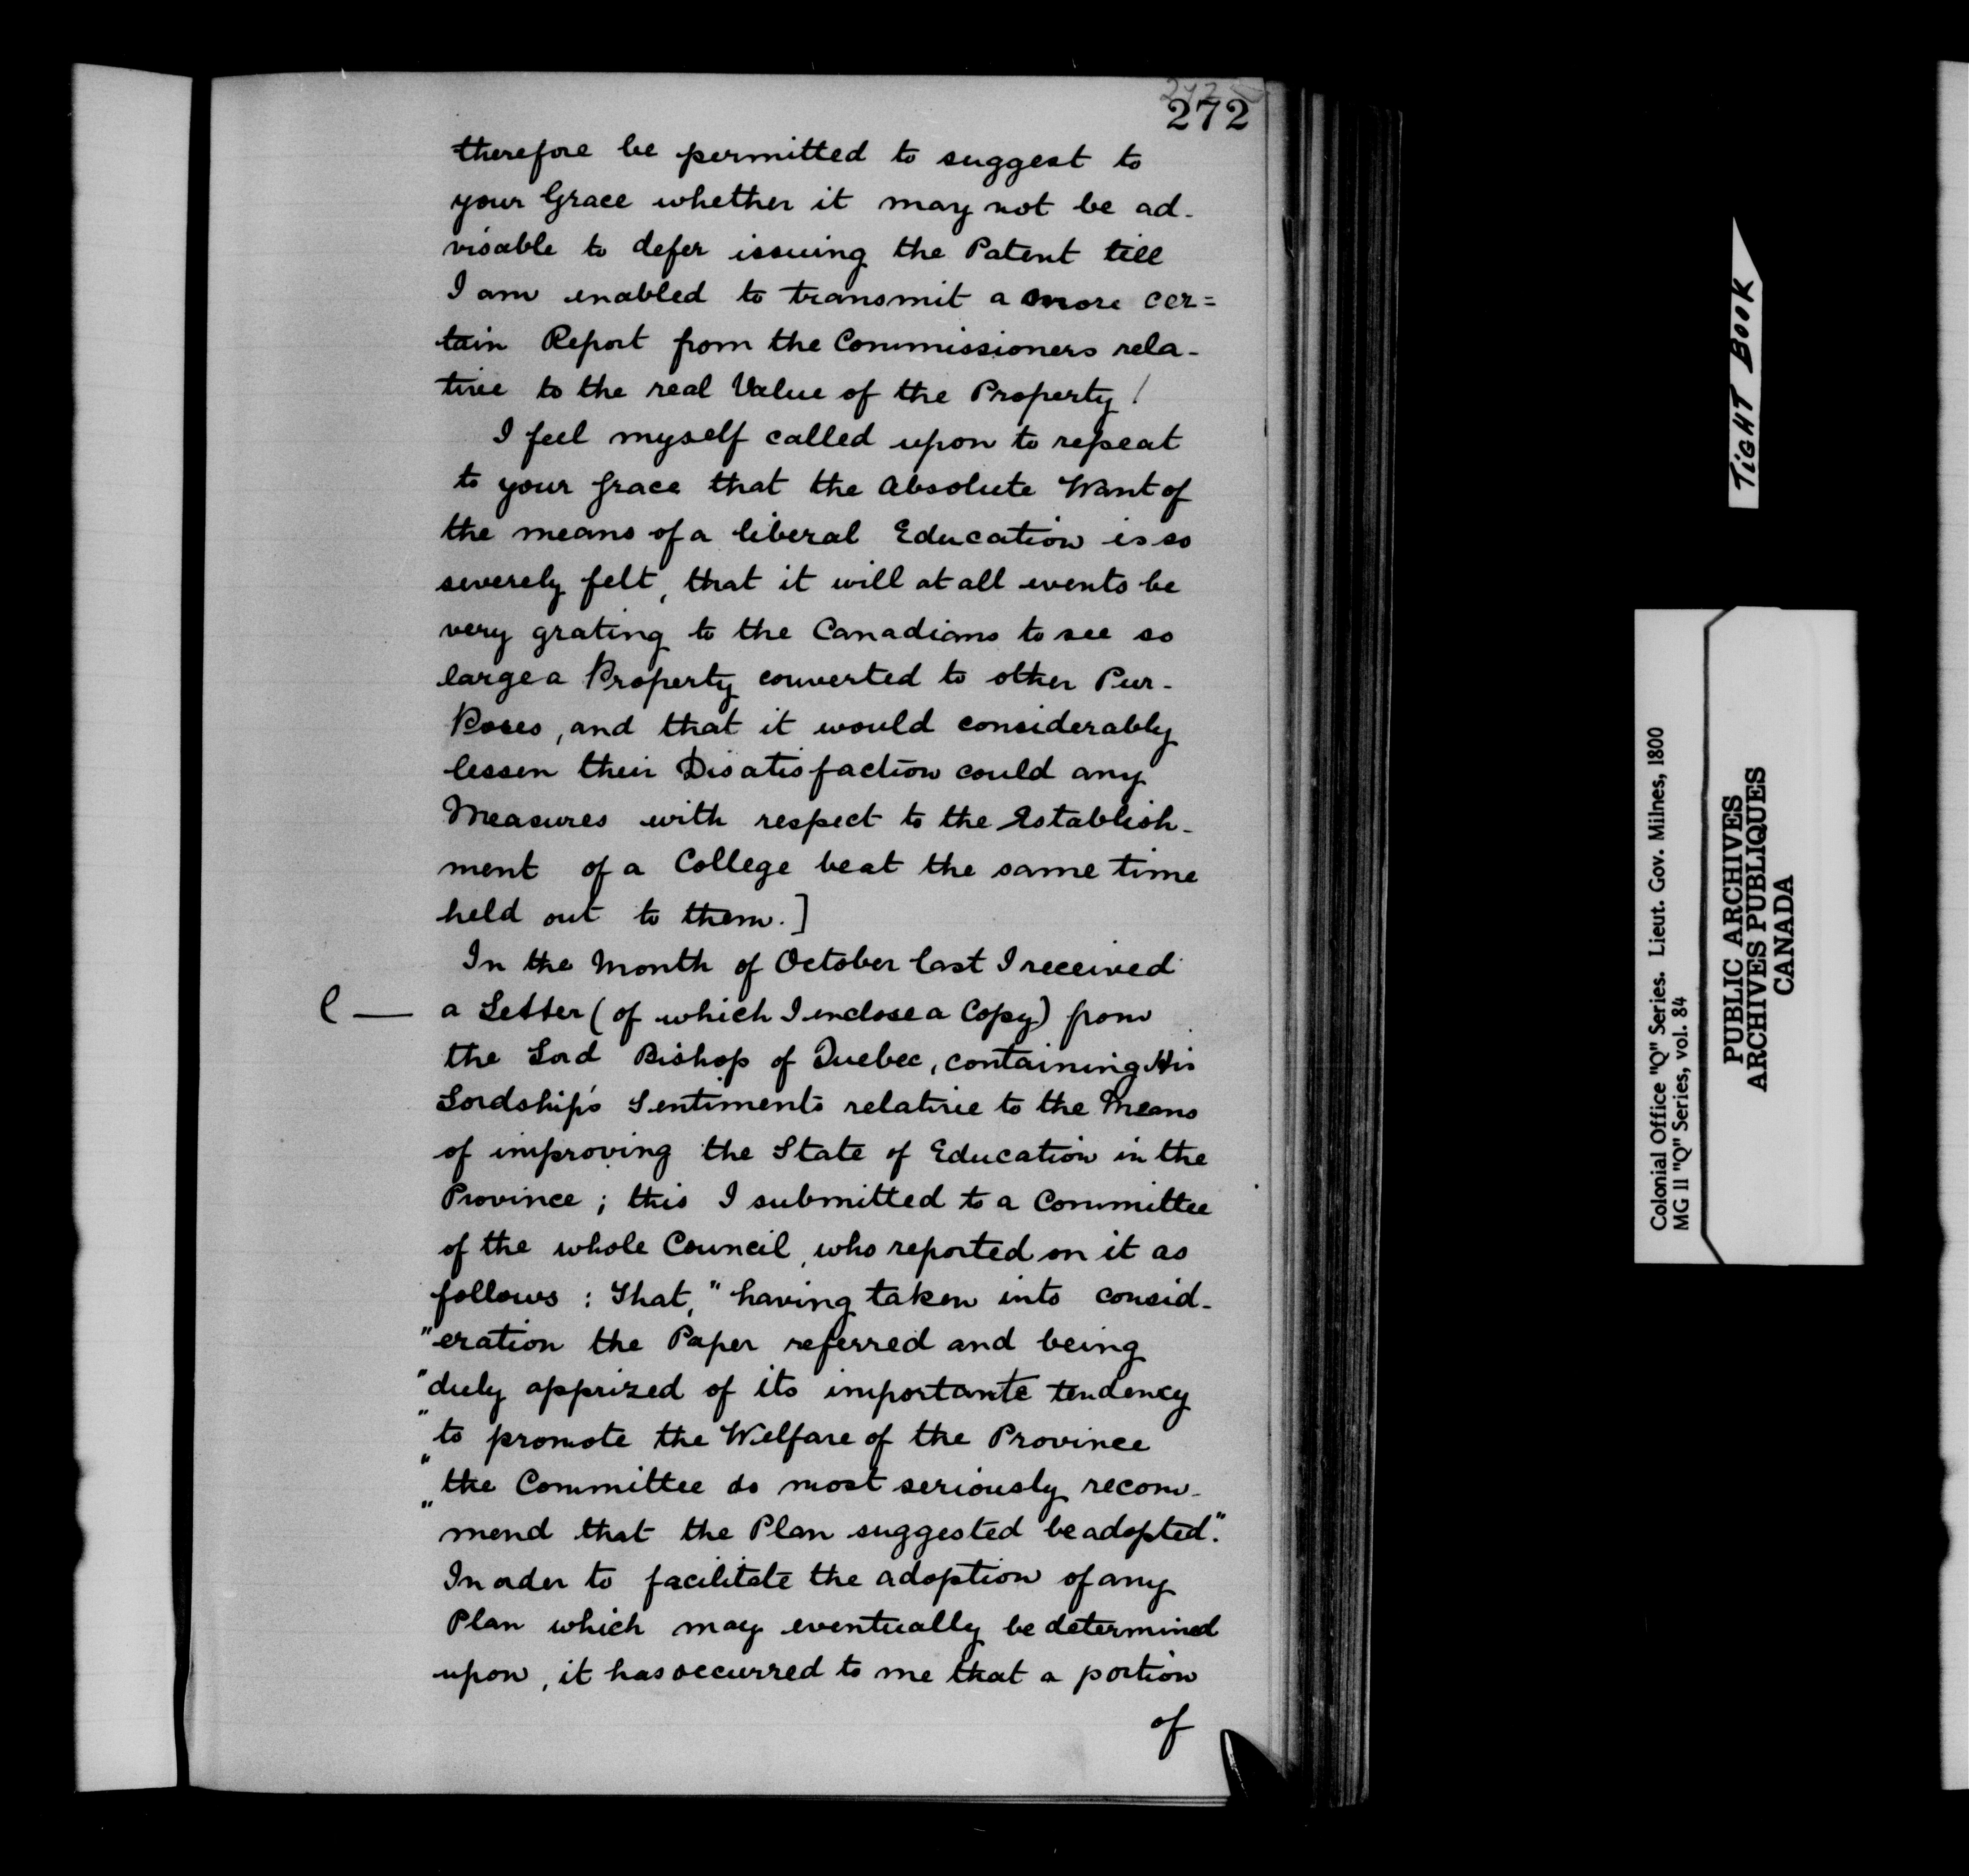 272
therefore be permitted to suggest to
your Grace whether it may not be ad-
visable to defer issuing the Patent till
I am enabled to transmit a more cer=
tain Report from the Commissioners rela-
tive to the real Value of the Property /
I feel myself called upon to repeat
to your Grace that the Absolute Want of
the means of a liberal Education is so
severely felt, that it will at all events be
very grating to the Canadians to see so
large a Property converted to other Pur-
Poses, and that it would considerably
lessen their Disatisfaction could any
Measures with respect to the Establish-
ment of a College be at the same time
held out to them.]
In the Month of October last I received
C — a Letter (of which I enclose a Copy) from
the Lord Bishop of Quebec, containing His
Lordship's Sentiments relative to the Means
of improving the State of Education in the
Province; this I submitted to a Committee
of the whole Council, who reported on it as
follows: That, "having taken into consid-
"eration the Paper referred and being
"duly apprized of its importante tendency
"to promote the Welfare of the Province
"the Committee do most seriously recom-
"mend that the Plan suggested be adopted."
In order to facilitate the adoption of any
Plan which may eventually be determined
upon, it has occurred to me that a portion
of
TIGHT BOOK
Colonial Office "Q" Series. Lieut. Gov. Milnes, 1800
MG 11 "Q" Series, vol. 84
PUBLIC ARCHIVES
ARCHIVES PUBLIQUES
CANADA